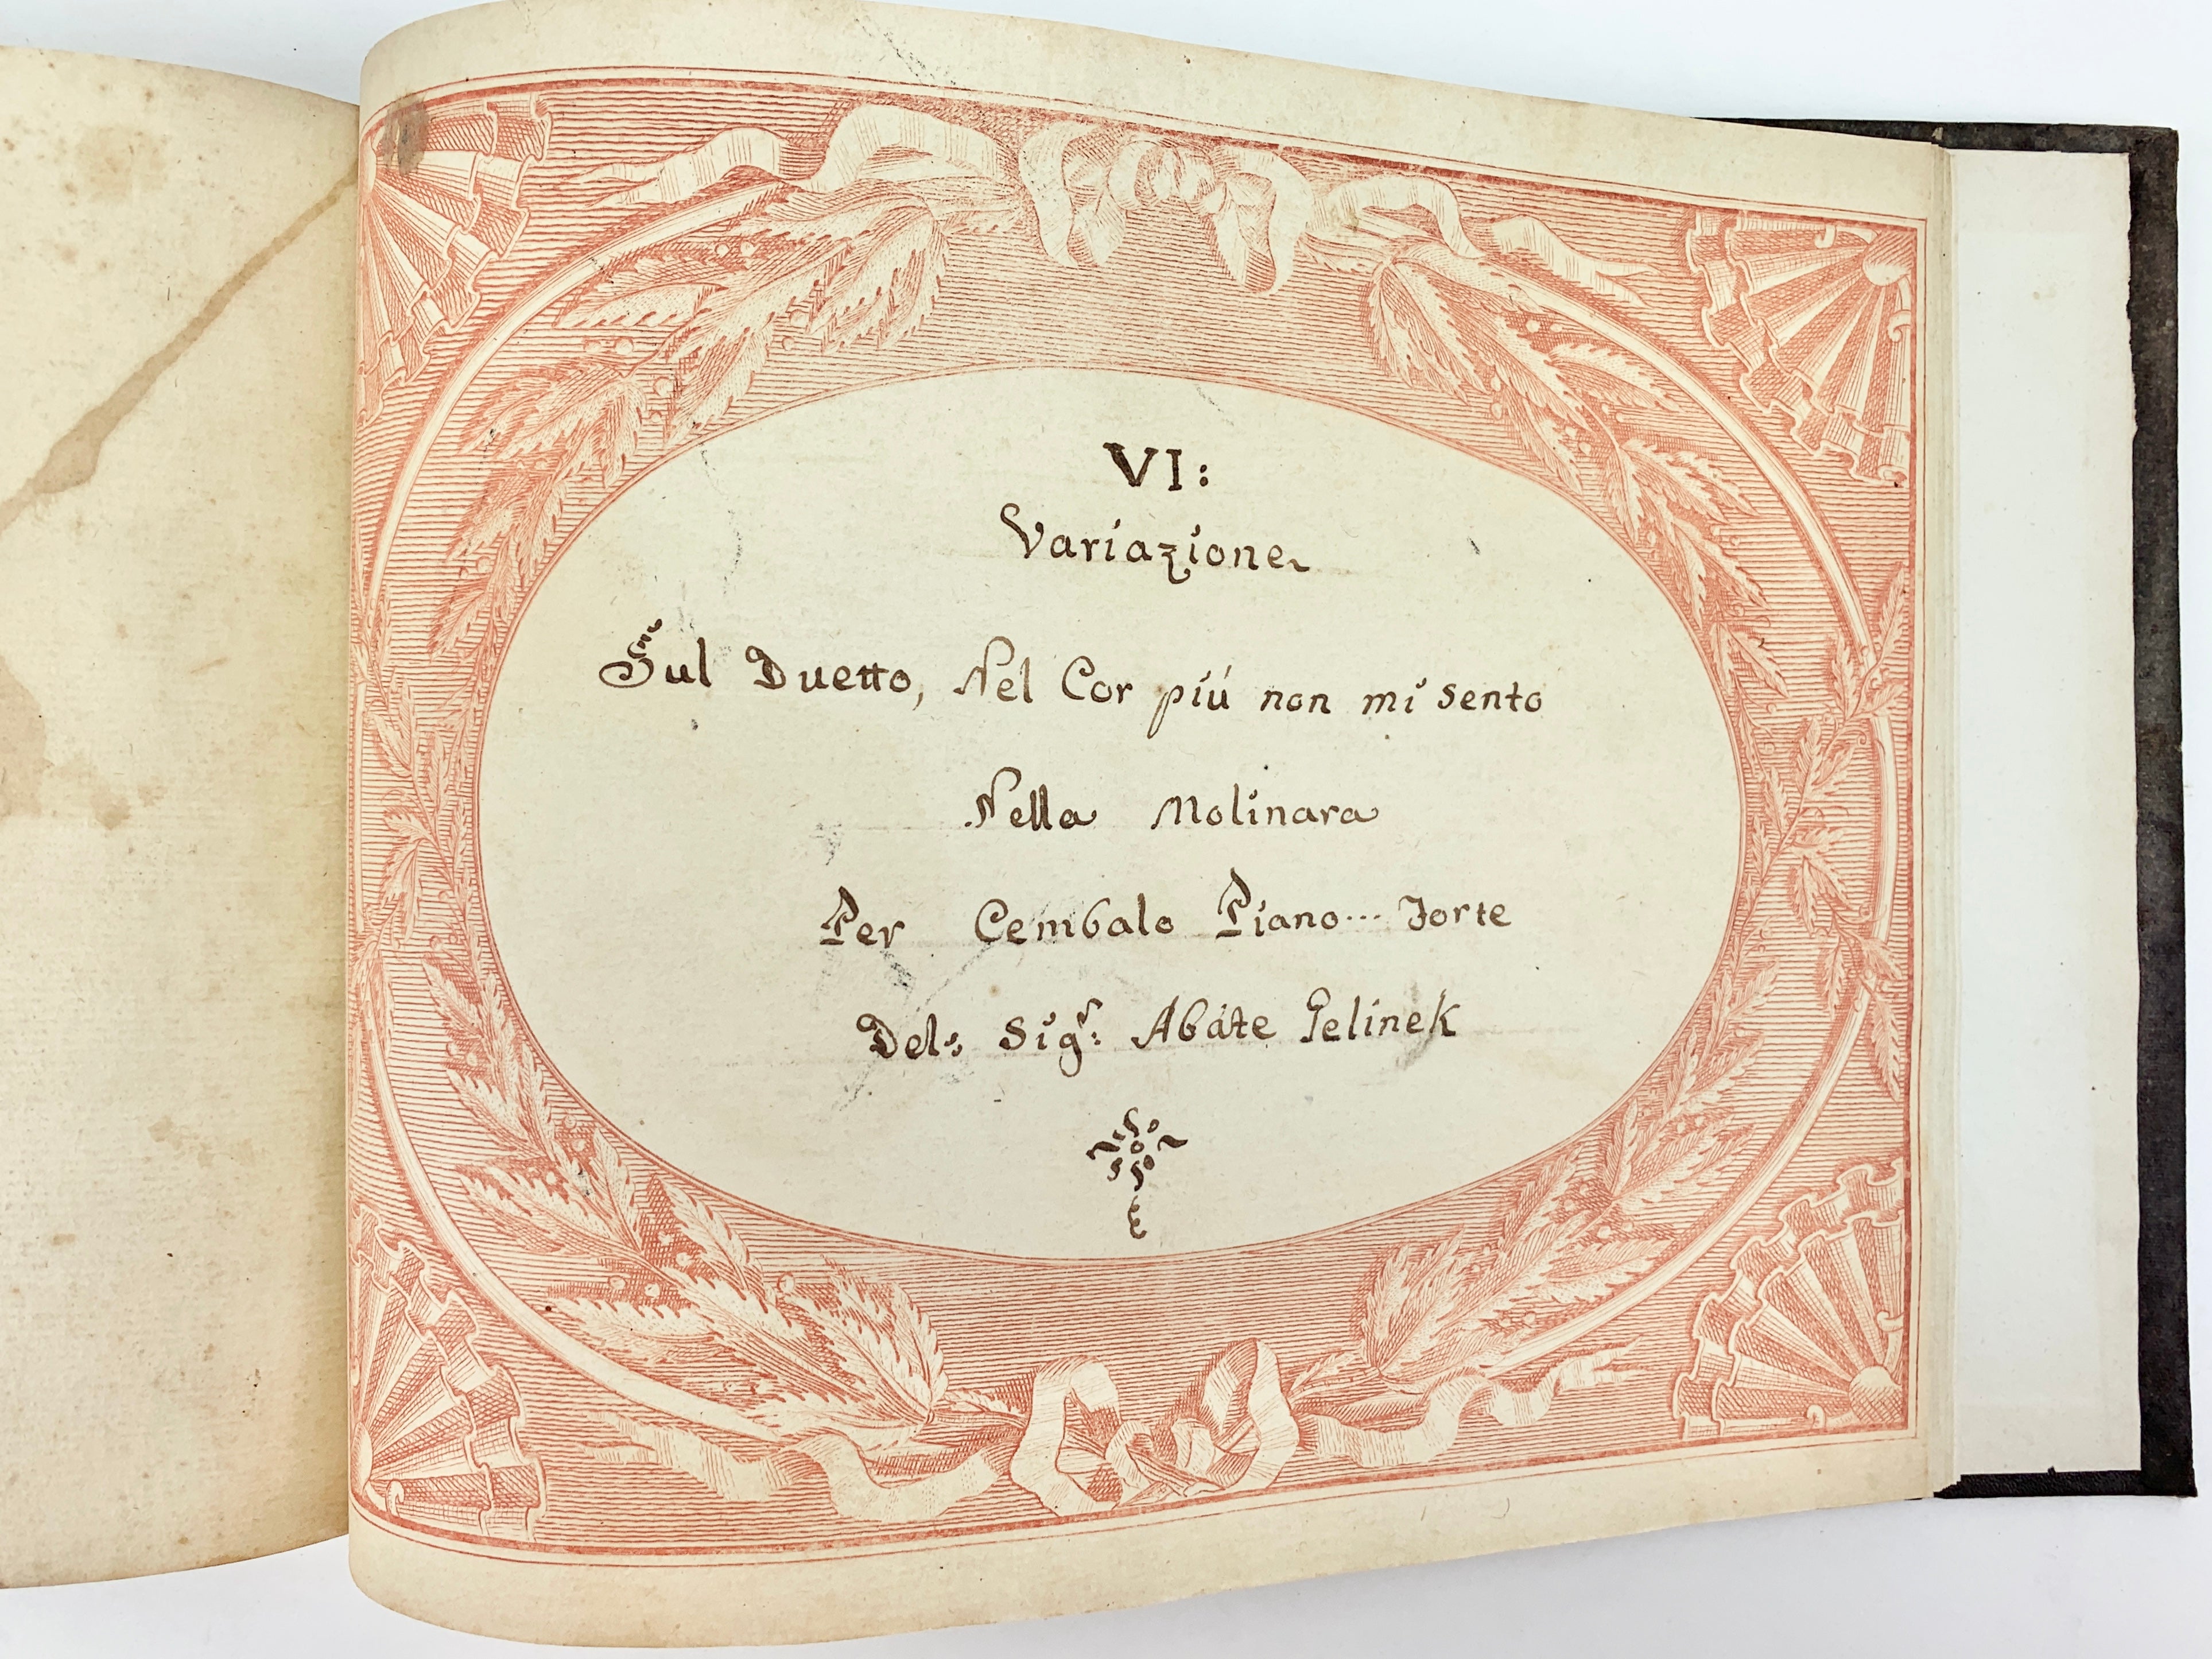 VI:
Variazione
Sul Duetto, Nel Cor piú non mi sento
Nella Molinara
Per Cembalo Piano... Forte
Del: Sigr: Abáte Gelinek